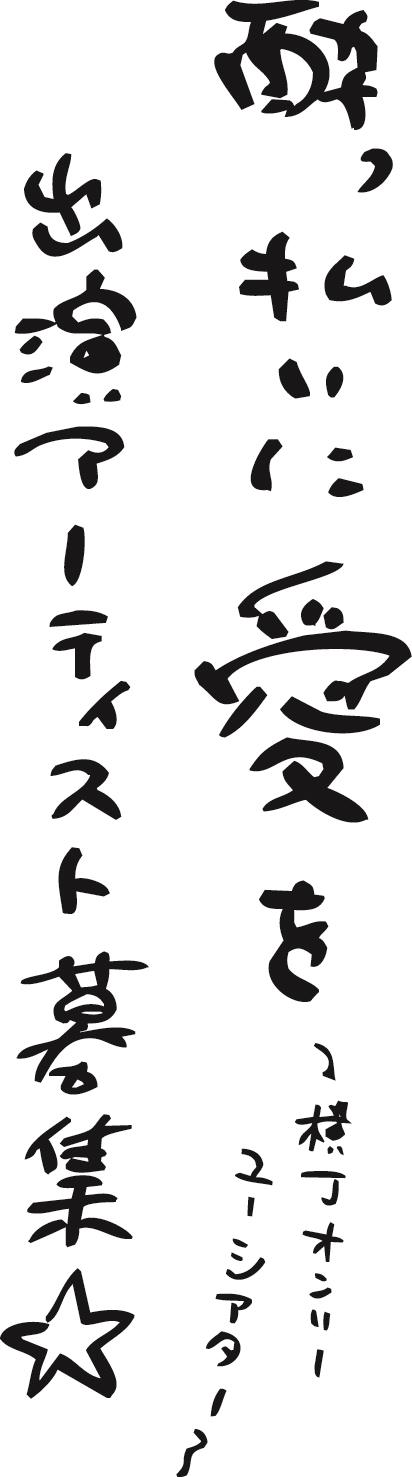 酔っ払いに愛を
〜横丁オンリー
ユーシアター〜
出演アーティスト募集☆